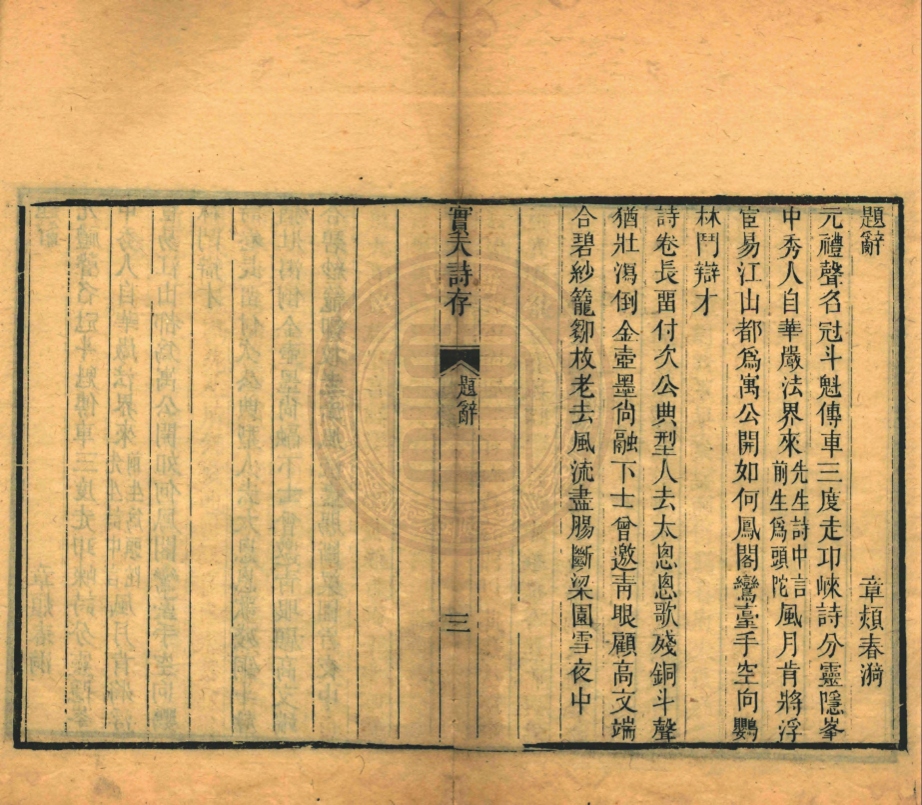 題辭
章頬春漪
元禮聲名冠斗魁傳車三度走卭崍詩分靈隱峯
中秀人自華嚴法界來先生詩中言前生爲頭陀風月肯將浮
宦易江山都爲寓公開如何鳳閣鸞臺手空向鸚
林鬥辯才
詩卷長畱付次公典型人去太悤悤歌殘銅斗聲
猶壯瀉倒金壺墨尙融下士曾邀靑眼顧高文端
合碧紗籠鄒枚老去風流盡腸斷梁園雪夜中
實夫詩存
題辭
三